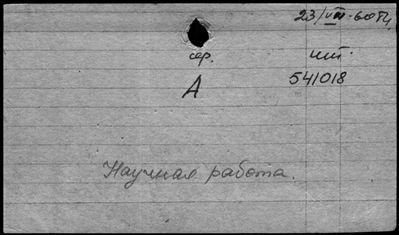 23/VIII-60 г.
сер. шт.
А 541018
Научная работа.